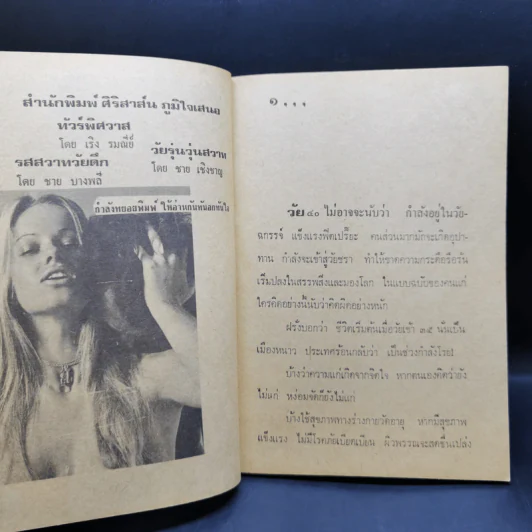 สำนักพิมพ์ ศิริสาส์น ภูมิใจเสนอ
ทัวร์พิศวาส
โดย เริง รมณีย์
วัยรุ่นวุ่นสวาท
โดย ชาย เชิงชาญ
รสสวาทวัยดึก
โดย ชาย บางพลี
กำลังทยอยพิมพ์ ให้อ่านกัน
๑...
วัย ๔๐ ไม่อาจจะนับว่า กำลังอยู่ในวัย-
ฉกรรจ์ แข็งแรงฟิตเปรี๊ยะ คนส่วนมากมักจะเกิดอุปา-
ทาน กำลังจะเข้าสู่วัยชรา ทำให้ขาดความกระตือรือร้น
เริ่มปลงในสรรพสิ่งและมองโลก ในแบบฉบับของคนแก่
ใครคิดอย่างนี้นับว่าคิดผิดอย่างหนัก
ฝรั่งบอกว่า ชีวิตเริ่มต้นเมื่อวัยเข้า ๓๕ นั่นเป็น
เมืองหนาว ประเทศร้อนกลับว่า เป็นช่วงกำลังโรย!
บ้างว่าความแก่เกิดจากจิตใจ หากตนเองคิดว่ายัง
ไม่แก่ หง่อมจัดก็ยังไม่แก่
บ้างใช้สุขภาพทางร่างกายวัดอายุ หากมีสุขภาพ
แข็งแรง ไม่มีโรคภัยเบียดเบียน ผิวพรรณจะสดชื่นเปล่ง